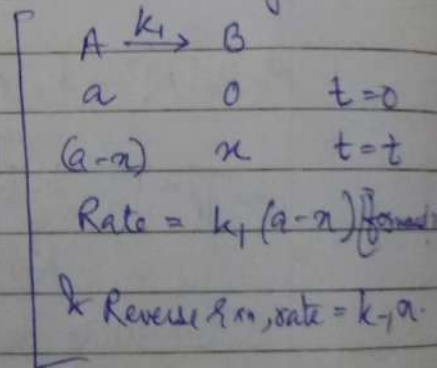 A k₁→ B
a 0 t=0
(a-x) x t=t
Rate = k₁ (a-x)
& Reverse rxn, rate = k₋₁x.